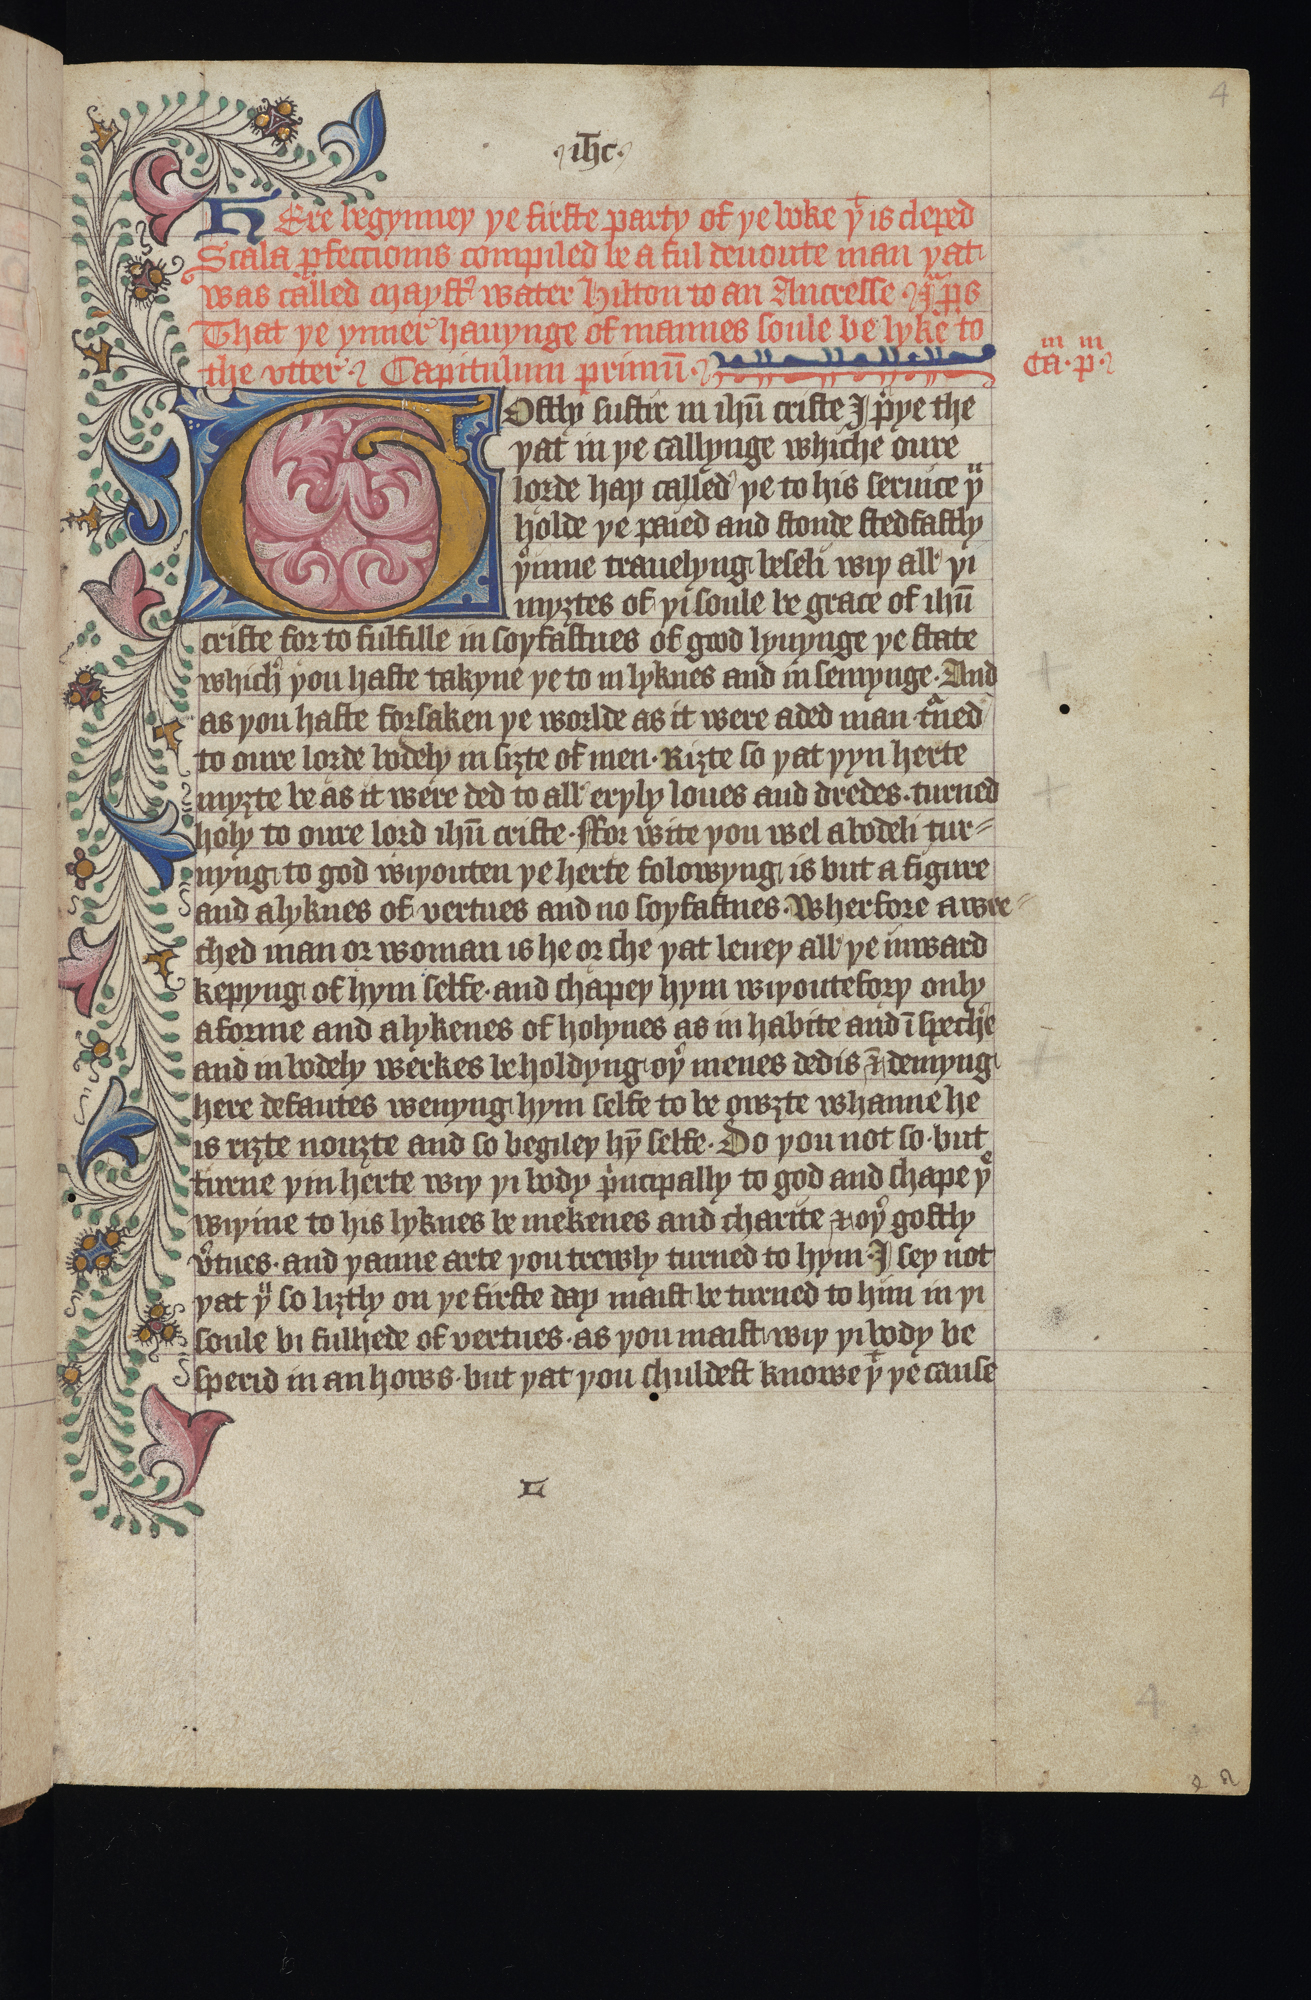 4
·ihc·
HEre begynney ye firste party of ye boke yͭ is cleped
Scala pfeccionis compiled be a ful deuoute man yat
was called mayst̛ water hilton to an Ancresse
That ye ynner hauynge of mannes soule be lyke to
the vtter Capitulum primū·
Ca·pͫ·
GOstly suster in ihū criste I pͥye the
yat in ye callynge whiche oure
lorde hay called ye to his seruice yͧ
holde ye paied and stonde stedfastly
yͬinne trauelyng beseli wiy all yi
myȝtes of yi soule be grace of ihū
criste for to fulfille in soyfastnes of good lyuynge ye state
which you haste takyne ye to in lyknes and in semynge· And
as you haste forsaken ye worlde as it were aded man tͬned
to oure lorde bodely in siȝte of men· Riȝte so yat yyn herte
myȝte be as it were ded to all eryly loues and dredes· turned
holy to oure lord ihū criste· Ffor wite you wel abodeli tur⸗
nyng to god wiyouten ye herte folowyng is but a figure
and alyknes of vertues and no soyfastnes· Wherfore awre⸗
ched man or woman is he or che yat leuey all ye inward
kepyng of hym selfe· and chapey hym wiyoutefory only
aforme and alykenes of holynes as in habite and ī speche
and in bodely werkes beholdyng oy̛ menes dedis & demyng
here defautes wenyng hym selfe to be owȝte whanne he
is riȝte nouȝte and so begiley hȳ selfe· Do you not so· but
turne yin herte wiy yi body pͥncipally to god and chape yͤ
wiyine to his lyknes be mekenes and charite & oy̛ gostly
v̛tues· and yanne arte you trewly turned to hym· I sey not
yat yͧ so liȝtly on ye firste day maist be turned to him in yi
soule bi fulhede of vertues· as you maist wiy yi body be
sperid in an hows· but yat you chuldest knowe yͭ ye cause
4